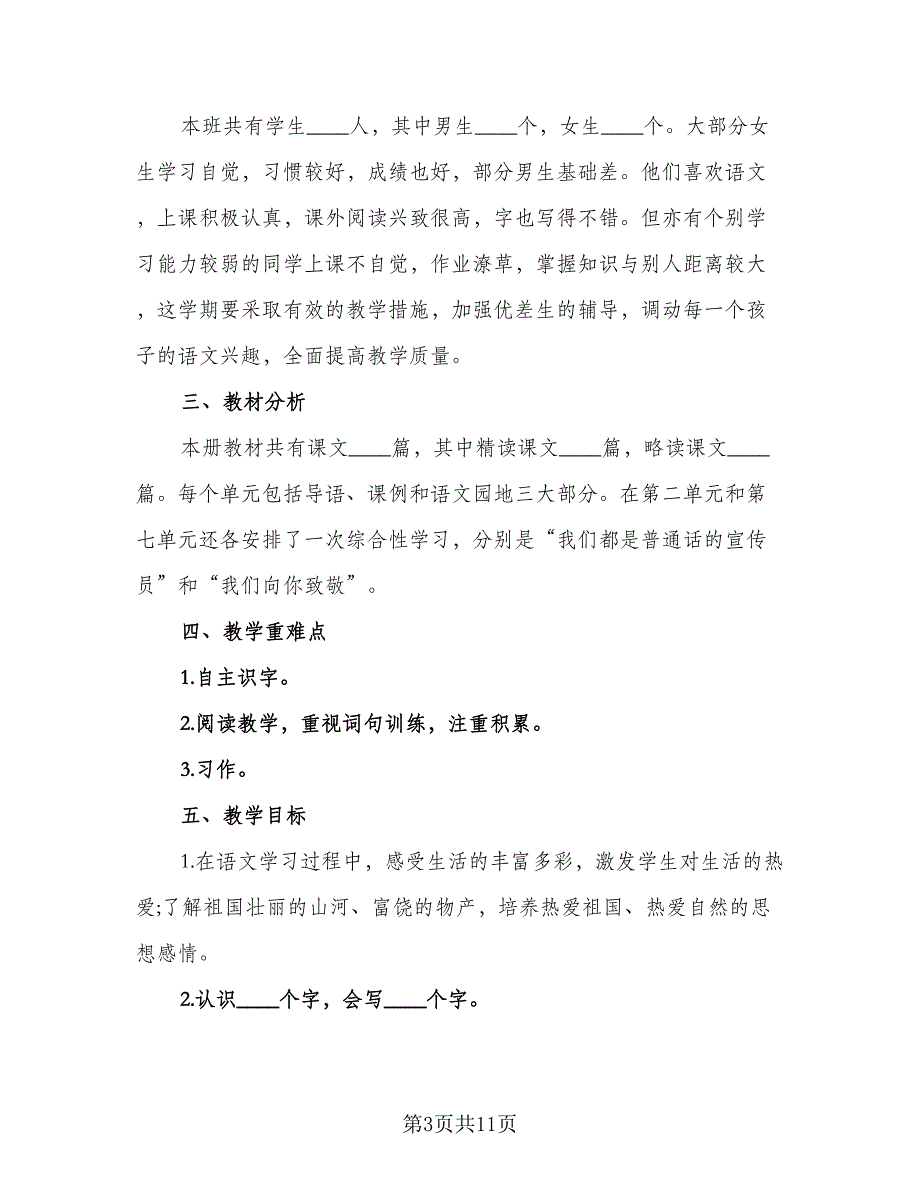 本班共有学生____人，其中男生____个，女生____个。大部分女
生学习自觉，习惯较好，成绩也好，部分男生基础差。他们喜欢语文
，上课积极认真，课外阅读兴致很高，字也写得不错。但亦有个别学
习能力较弱的同学上课不自觉，作业潦草，掌握知识与别人距离较大
，这学期要采取有效的教学措施，加强优差生的辅导，调动每一个孩
子的语文兴趣，全面提高教学质量。
三、教材分析
本册教材共有课文____篇，其中精读课文____篇，略读课文____
篇。每个单元包括导语、课例和语文园地三大部分。在第二单元和第
七单元还各安排了一次综合性学习，分别是“我们都是普通话的宣传
员”和“我们向你致敬”。
四、教学重难点
1.自主识字。
2.阅读教学，重视词句训练，注重积累。
3.习作。
五、教学目标
1.在语文学习过程中，感受生活的丰富多彩，激发学生对生活的热
爱;了解祖国壮丽的山河、富饶的物产，培养热爱祖国、热爱自然的思
想感情。
2.认识____个字，会写____个字。
第3页共11页